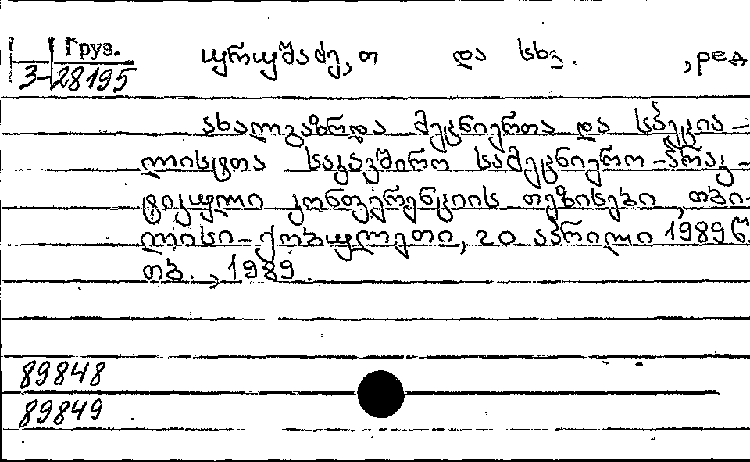 Груз.
3-28195
ურუშაძე, თ და სხვ. , ред
ახალგაზრდა მეცნიერთა და სპეცია-
ლისტთა საკავშირო სამეცნიერო-პრაქ-
ტიკული კონფერენციის თეზისები, თბი-
ლისი-ქობულეთი, 20 აპრილი 1989წ
თბ., 1989.
89848
89849